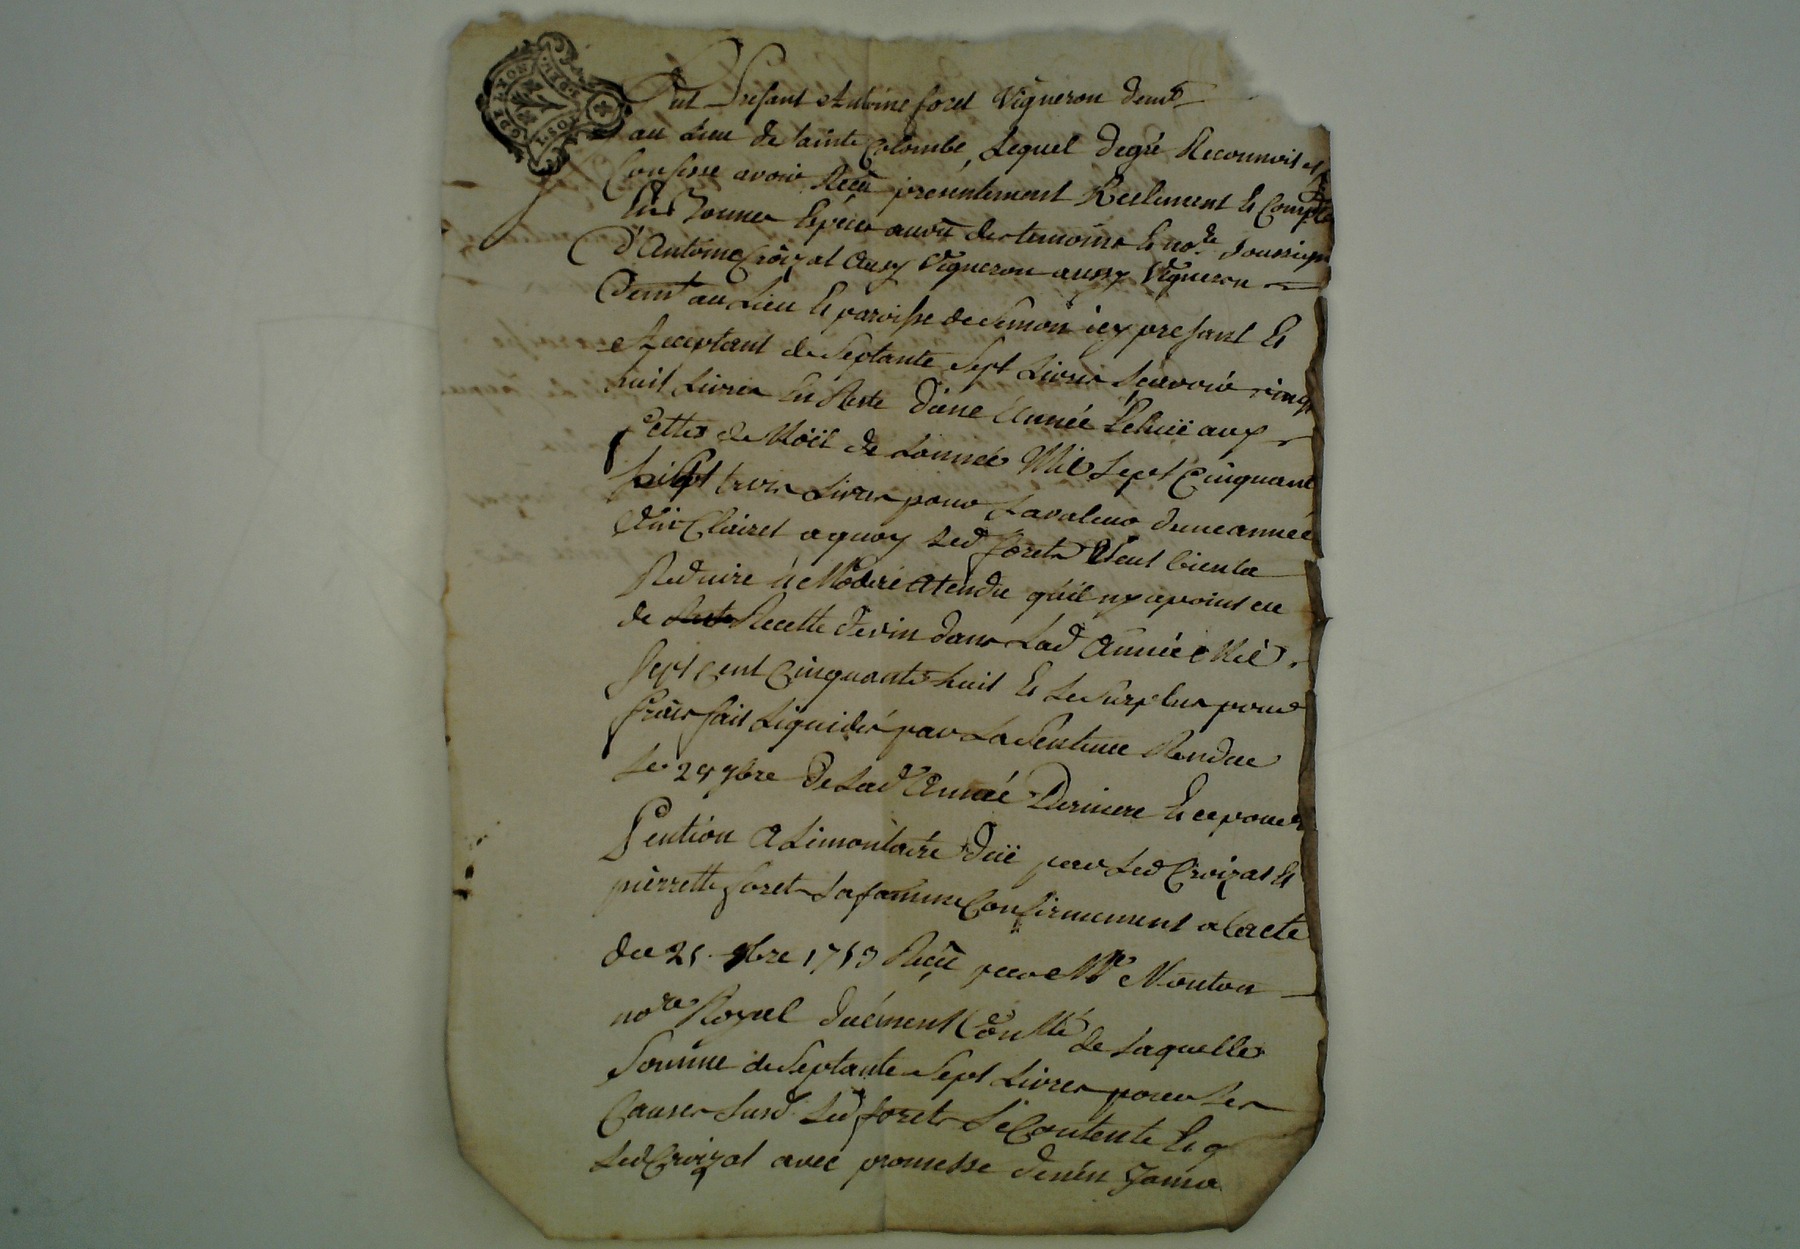 GDE LYON
Fut Présant Antoine foret Vigneron demt
au Lieu de Sainte Colombe, Lequel degré Reconnoit et
Confesse avoir Reçu présentement Réellement et Compt
En bonnes Espéces auvû des temoins et nore. Soussign
d'Antoine Croizat Aussy Vigneron aussy Vigneron
demt au Lieu et paroisse de Simon icy présant et
Acceptant de Septante Sept Livres Scavoir vingt
huit Livres En Reste d'une Année Echüe aux
fettes de Noël de Lannée Mil Sept Cinquante
huit trois Livres pour Lavaleur dune année
Vin Clairet aquoy Led foret Veut bien la
Reduire et Moderé Atendu qu'il ny a point eu
de Recette de vin dans Lad Année Mil
Sept Cent Cinquante huit et Le Surplus pour
frais fait Liquidés par La Sentence Rendue
Le 29 7bre De Lad Année Derniere et ce pour
Pention Alimentaire düe par Led Croizat et
pierrette foret Sa famme Conformement a lacte
du 25 9bre 1753 Reçu par Me Mouton
nore Royal düement Conllé de Laquelle
Somme de Septante Sept Livres pour Les
Causes Susd. Led foret Se Contente et q
Led Croizat avec promesse de nén Jama